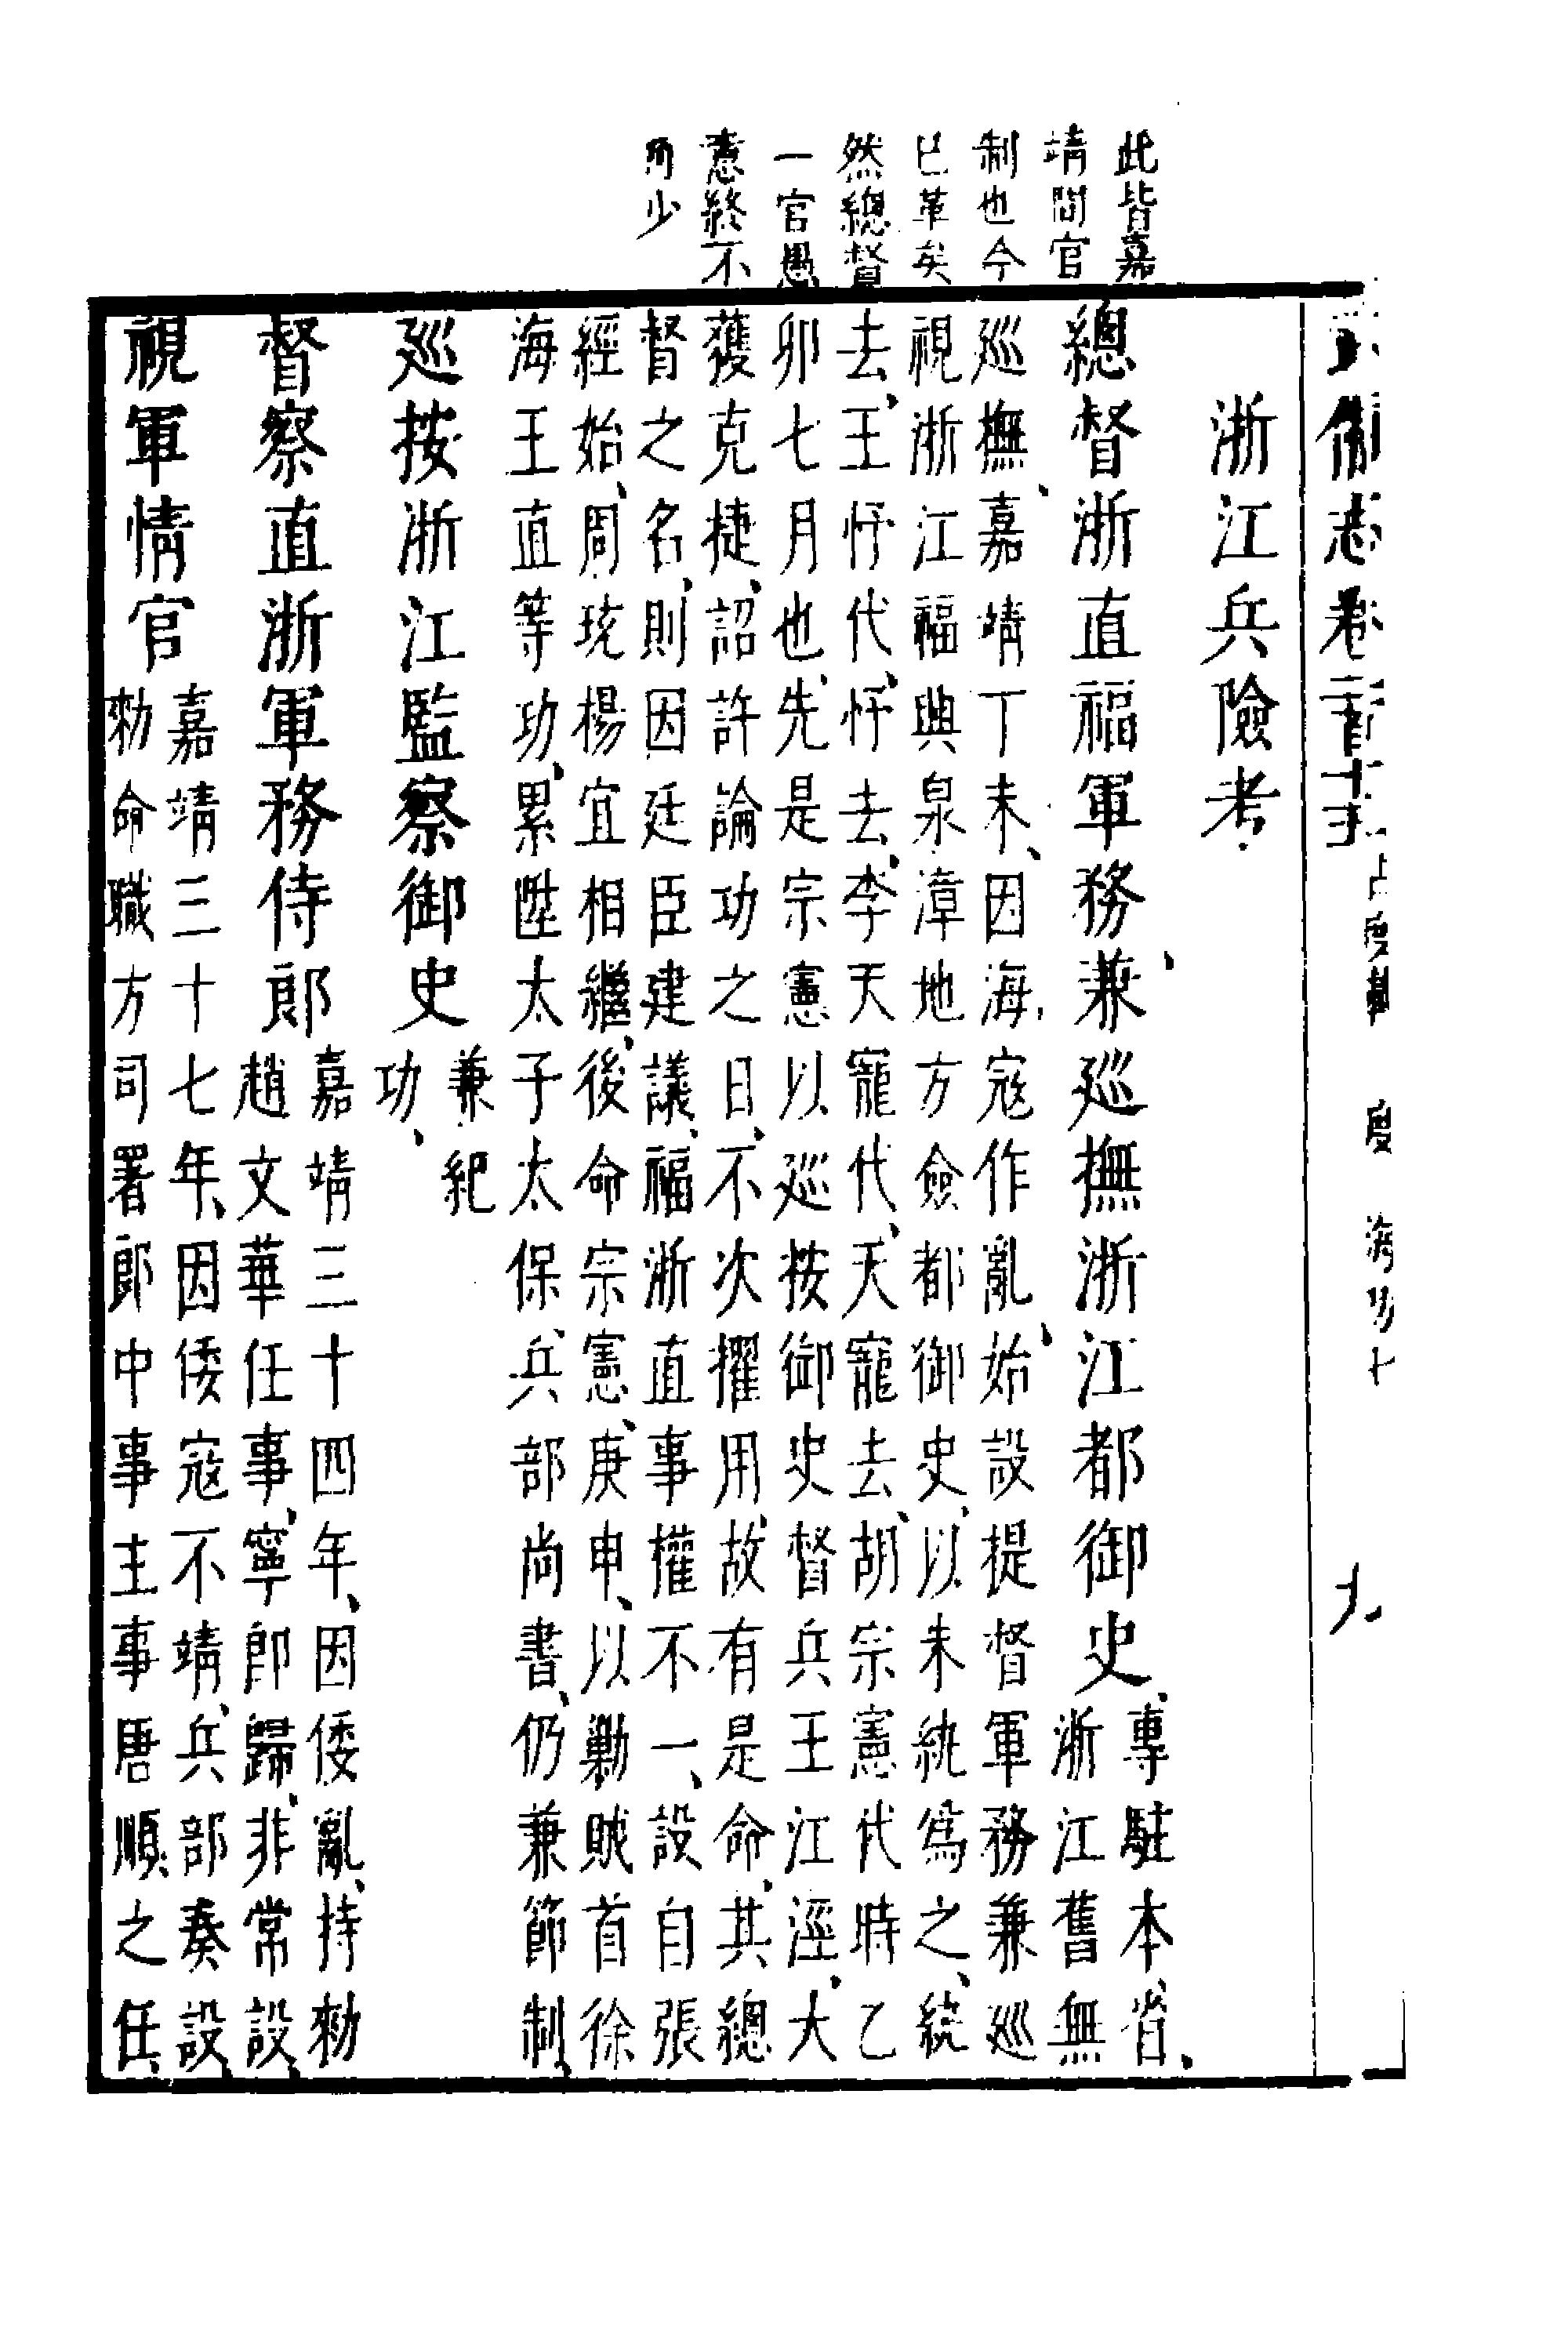 此皆嘉
靖間官
制也今
已革矣
然總督
一官愚
意終不
可少
備志卷二百十
度
海防七
九
浙江兵險考
總督浙直福軍務、兼巡撫浙江都御史、
專駐本省、
浙江舊無
巡撫、嘉靖丁未、因海寇作亂、始設提督軍務兼巡
視浙江福興泉漳地方僉都御史、以朱紈爲之、紈
去、王忬代、忬去、李天寵代、天寵去、胡宗憲代時乙
卯七月也、先是宗憲以巡按御史督兵王江涇、大
獲克捷、詔許論功之日、不次擢用、故有是命、其總
督之名、則因廷臣建議、福浙直事權不一、設自張
經始、周珫楊宜相繼、後命宗憲、庚申、以勦賊首徐
海王直等功、累陞太子太保、兵部尚書、仍兼節制、
巡按浙江監察御史
兼紀
功、
督察直浙軍務侍郎
嘉靖三十四年、因倭亂、持勑
趙文華任事、寧即歸、非常設、
視軍情官
嘉靖三十七年、因倭寇不靖、兵部奏設、
勑命職方司署郎中事主事唐順之任、